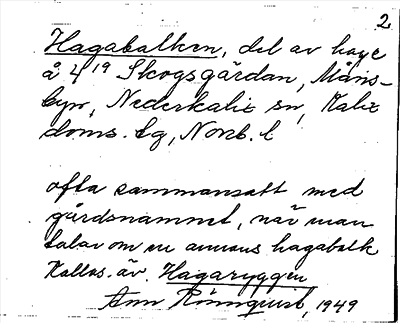 2
Hagabalken, del av hage
å 4¹⁹ Skogsgärdan, Måns-
byn, Nederkalix sn, Kalix
doms. tg, Norrb. l
ofta sammansatt med
gårdsnamnet, när man
talar om en annans hagabalk
Kallas äv. Hagaryggen
Ann Rönnquist, 1949